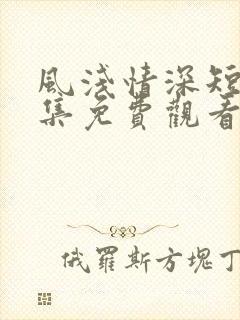 風淺情深短
集免費觀看
俄羅斯方塊丁